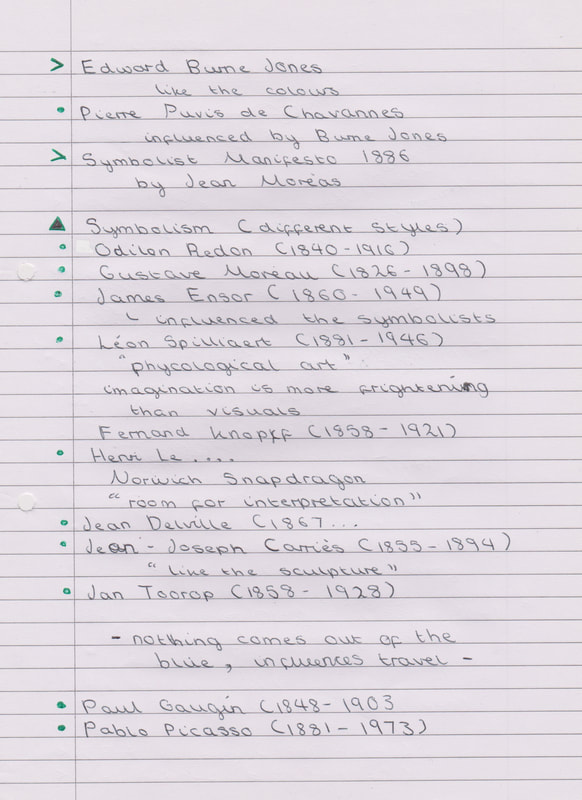 > Edward Burne Jones
like the colours
• Pierre Puvis de Chavannes
influenced by Burne Jones
> Symbolist Manifesto 1886
by Jean Moréas
▲ Symbolism (different styles)
• Odilon Redon (1840-1916)
• Gustave Moreau (1826-1898)
• James Ensor (1860-1949)
╰ influenced the symbolists
• Léon Spilliaert (1881-1946)
"phycological art"
imagination is more frightening
than visuals
Fernand Knopff (1858-1921)
• Henri Le....
Norwich Snapdragon
"room for interpretation"
• Jean Delville (1867...
• Jean-Joseph Carriès (1855-1894)
"like the sculpture"
• Jan Toorop (1858-1928)
- notthing comes out of the
blue, influences travel -
• Paul Gaugin (1848-1903
• Pablo Picasso (1881-1973)